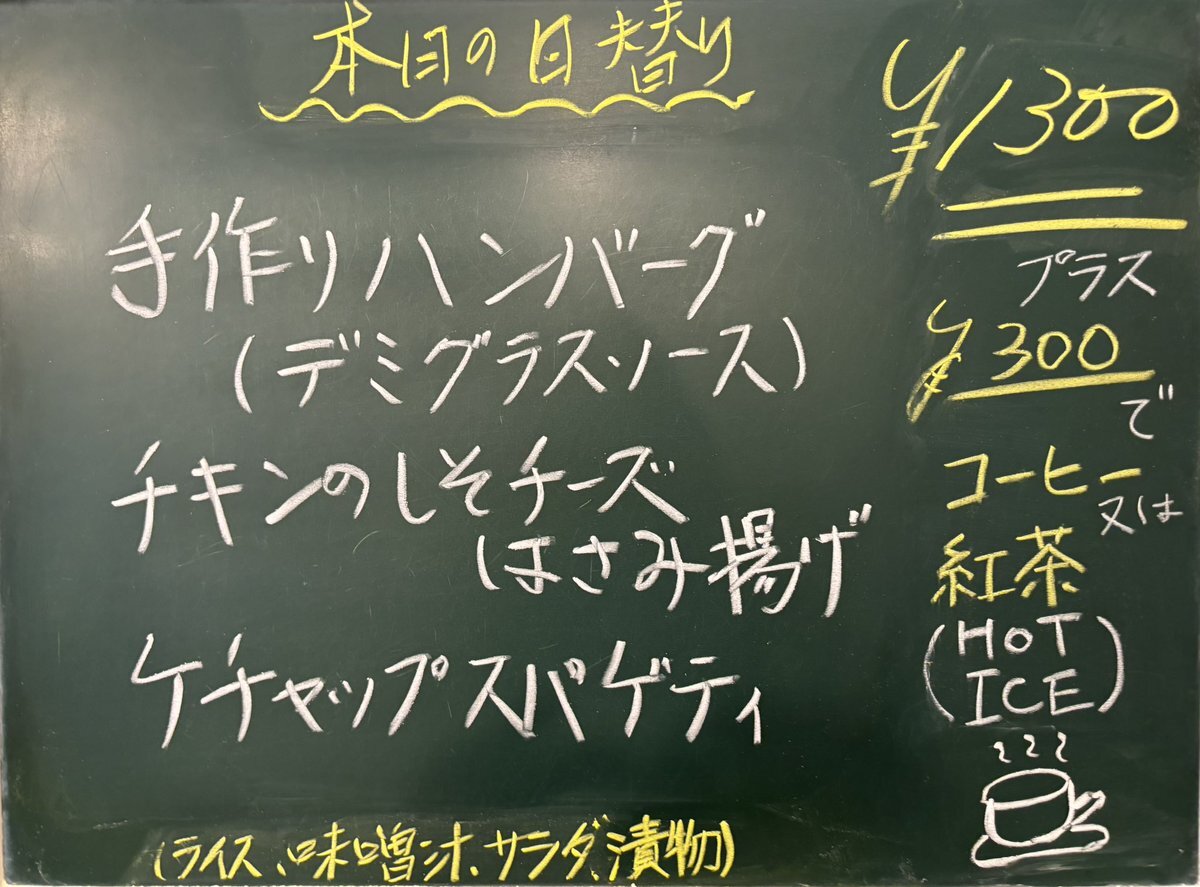 本日の日替り
手作りハンバーグ
(デミグラスソース)
チキンのしそチーズ
はさみ揚げ
ケチャップスパゲティ
(ライス、味噌汁、サラダ、漬物)
¥1300
プラス
¥300
で
コーヒー
又は
紅茶
(HOT
ICE)